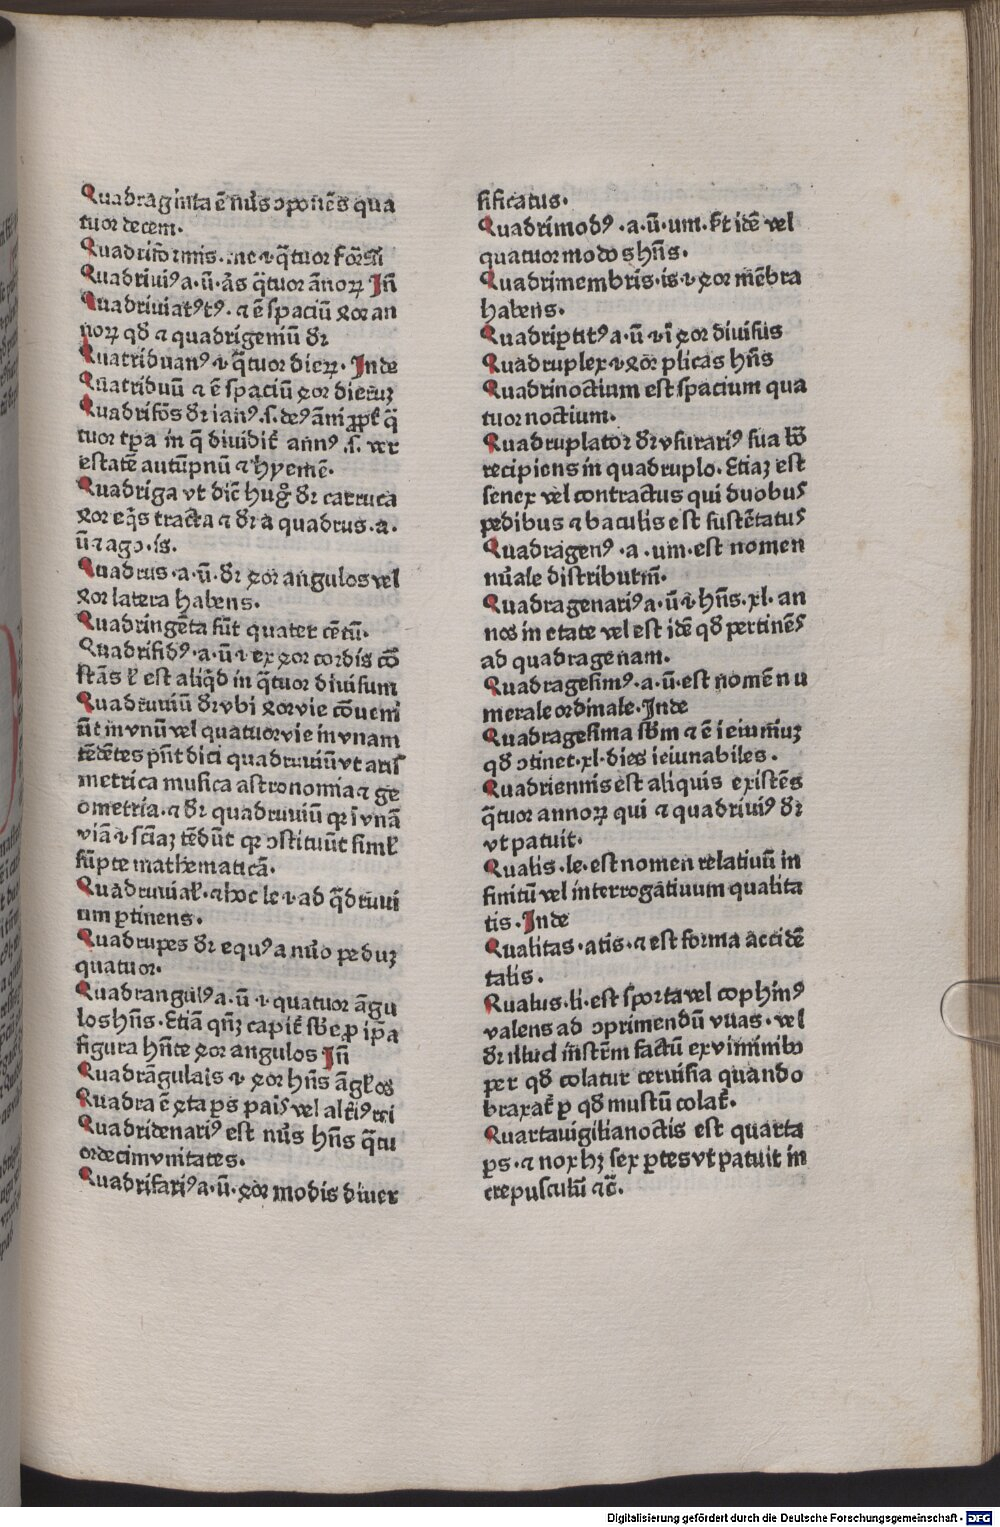 Quadraginta ē nũs ɔponēs qua
tuor decem.
Quadriformis. me ⁊ q̃tuor form̃
Quadriviꝰ a. ũ. ãs q̃tuor ãnoꝝ Iñ
Quadriviatꝰ tꝰ. ⁊ ē spaciũ q̃or an
noꝝ qđ ⁊ quadrigeniũ dr̃
Quatriduanꝰ ⁊ q̃tuor dieꝝ. Inde
Quatriduũ ⁊ ē spaciũ q̃or dieruꝫ
Quadrifōs dr̃ ianꝰ .s. deꝰ ãni q̃
tuor tꝑa in q̃ dividit̃ annꝰ .s. ver
estatē autũpnũ ⁊ hyemē.
Quadriga vt dic̃ hug̃ dr̃ carruca
q̃or eq̃s tracta ⁊ dr̃ a quadrus .a.
ũ ⁊ ago .is.
Quadrus .a. ũ. dr̃ q̃or angulos vel
q̃or latera habens.
Quadringēta sũt quater cētũ.
Quadrifidꝰ .a. ũ ⁊ ex q̃or cordis cō
stãs ł est aliq̃d in q̃tuor divisum
Quadruuiũ dr̃ vbi q̃or vie cōueni
ũt in vnũ vel quatuor vie in vnam
tēdētes pñt dici quadruuiũ vt aris
metrica musica astronomia ⁊ ge
ometria. ⁊ dr̃ quadruuiũ qꝛ ĩ vnã
viã ⁊ sciaꝫ tēdũt qꝛ ɔstituũt simł
sũpte mathematicã.
Quadruuiał. ⁊ hoc le ⁊ ad q̃druui
um ꝑtinens.
Quadrupes dr̃ equꝰ a nũo peduꝫ
quatuor.
Quadrangulꝰ a. ũ. ⁊ quatuor ãgu
los hñs. Etiã qñꝫ capit̃ sƀe ꝓ ip̃a
figura hñte q̃or angulos Iñ
Quadrãgulais ⁊ q̃or hñs ãgłos
Quadra ē q̃ta ꝑs pais vel altĩꝰ rei
Quadridenariꝰ est nũs hñs q̃tu
ordecim vnitates.
Quadrifariꝰ a. ũ. q̃or modis diuer
sificatus.
Quadrimodꝰ .a. ũ. um. idē vel
quatuor modos hñs.
Quadrimembris. is ⁊ q̃or mēbra
habens.
Quadriꝑtitꝰ a. ũ ⁊ ĩ q̃or divisus
Quadruplex ⁊ q̃or plicas hñs
Quadrinoctium est spacium qua
tuor noctium.
Quadruplator dr̃ vsurariꝰ sua
recipiens in quadruplo. Etiaꝫ est
senex vel contractus qui duobus
pedibus ⁊ baculis est sustētatus
Quadragenꝰ .a .um. est nomen
nũale distributiũ.
Quadragenariꝰ a. ũ ⁊ hñs. xl. an
nos in etate vel est idē qđ pertinēs
ad quadragenam.
Quadragesimꝰ .a. ũ. est nomē nu
merale ordinale. Inde
Quadragesima sƀm ⁊ ē ieiuniuꝫ
qđ ɔtinet .xl. dies ieiunabiles.
Quadriennis est aliquis existēs
q̃tuor annoꝝ qui ⁊ quadriuiꝰ dr̃
vt patuit.
Qualis .le. est nomen relatiuũ in
finitũ vel interrogatiuum qualita
tis. Inde
Qualitas .atis. ⁊ est forma accidē
talis.
Qualus. li. est sporta vel cophinꝰ
valens ad ɔprimendũ vuas. vel
dr̃ illud instr̃m factũ ex viminibꝰ
per qđ colatur ceruisia quando
braxat̃ ꝑ qđ mustũ colat̃.
Quarta vigilia noctis est quarta
ꝑs. ⁊ nox hꝫ sex ꝑtes vt patuit in
crepusculũ ⁊c̃.
Digitalisierung gefördert durch die Deutsche Forschungsgemeinschaft - DFG